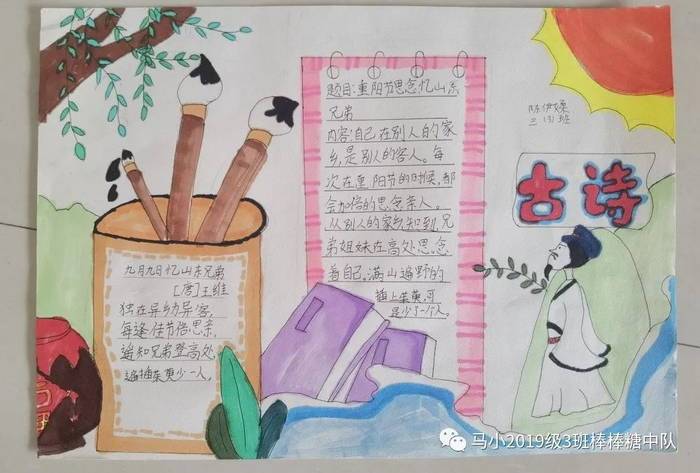 题目:重阳节思念忆山东
兄弟
内容:自己在别人的家
乡,是别人的客人。每
次在重阳节的时候,都
会加倍的思念亲人。
从别人的家乡知到,兄
弟姐妹在高处思念
着自己。满山遍野的
插上茱萸,可
是少了一个人。
三(3)班
古诗
九月九日忆山东兄弟
[唐]王维
独在异乡异客,
每逢佳节倍思亲,
遥知兄弟登高处,
遍插茱萸少一人。
马小2019级3班棒棒糖中队